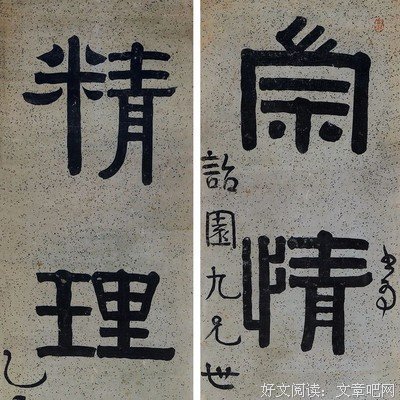 崇情
詒園九兄世
精理
好文阅读：文章吧网